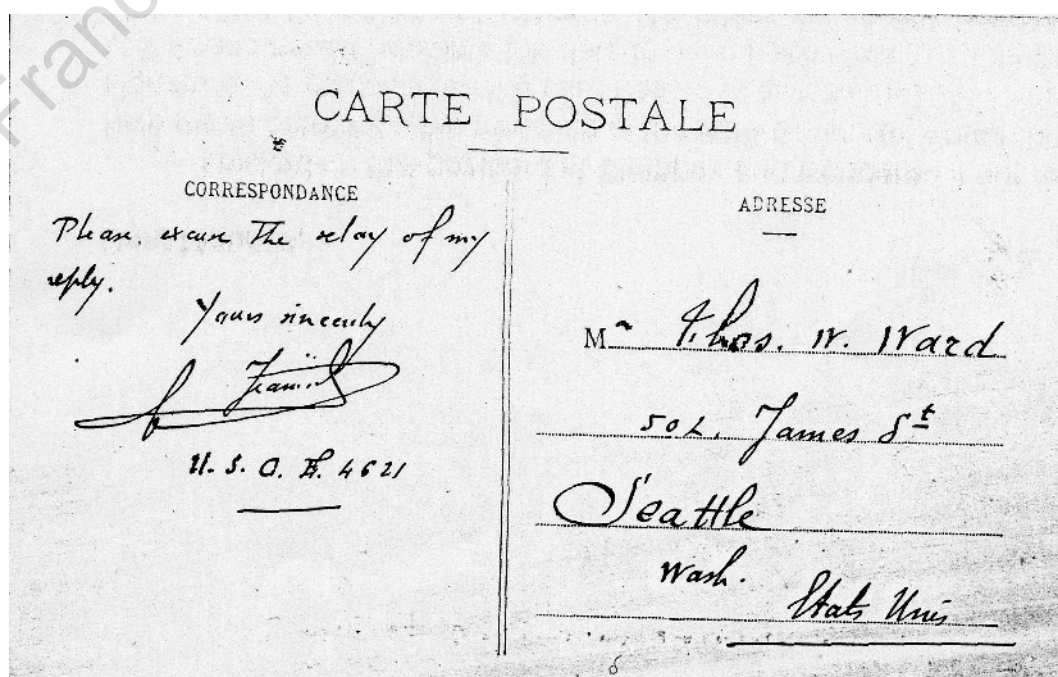 Franc
CARTE POSTALE
CORRESPONDANCE
Please excuse the delay of my
reply.
Yours sincerely
U. S. C. E. 4621
ADRESSE
Mr Thos. W. Ward
502. James St
Seattle
Wash.
Etats Unis